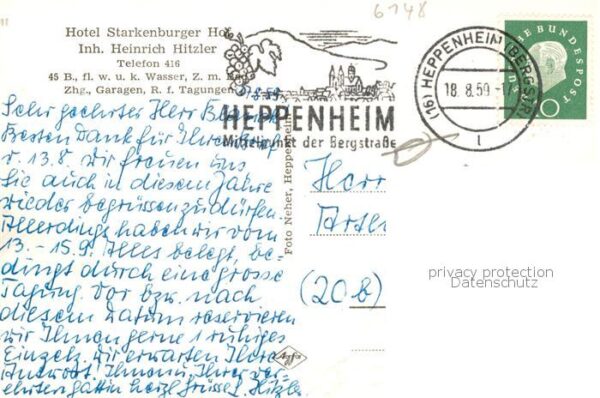 6148
Hotel Starkenburger Hof
Inh. Heinrich Hitzler
Telefon 416
45 B., fl. w. u. k. Wasser, Z. m. Bad
Zhg., Garagen, R. f. Tagungen
17.8.59.
Sehr geehrter Herr
Besten Dank für Ihre
v. 13.8. Wir freuen uns
Sie auch in diesem Jahre
wieder begrüssen zu dürfen.
Allerdings haben wir vom
13. - 15.9. Alles belegt, be-
dingt durch eine grosse
Tagung. Vor bzw. nach
diesem Datum reservieren
wir Ihnen gerne 1 ruhiges
Einzelz. Wir erwarten Ihre
Antwort! Ihnen u. Ihrer ver-
ehrten Gattin herzl. Grüsse F. Hitzler
HEPPENHEIM
Mittelpunkt der Bergstraße
(16) HEPPENHEIM (BERGSTR)
18.8.59.-1
l
DEUTSCHE BUNDESPOST
10
Foto Neher, Heppenheim
Herr
Arth
(20b)
Agfa
privacy protection
Datenschutz